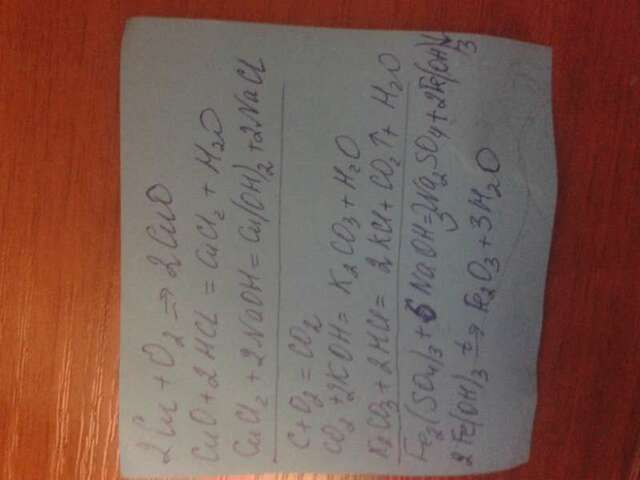 2Cu + O2 → 2CuO
CuO + 2HCl = CuCl2 + H2O
CuCl2 + 2NaOH = Cu(OH)2 + 2NaCl
C + O2 = CO2
CO2 + 2KOH = K2CO3 + H2O
K2CO3 + 2HCl = 2KCl + CO2↑ + H2O
Fe2(SO4)3 + 6NaOH = 3Na2SO4 + 2Fe(OH)3↓
2Fe(OH)3 t→ Fe2O3 + 3H2O